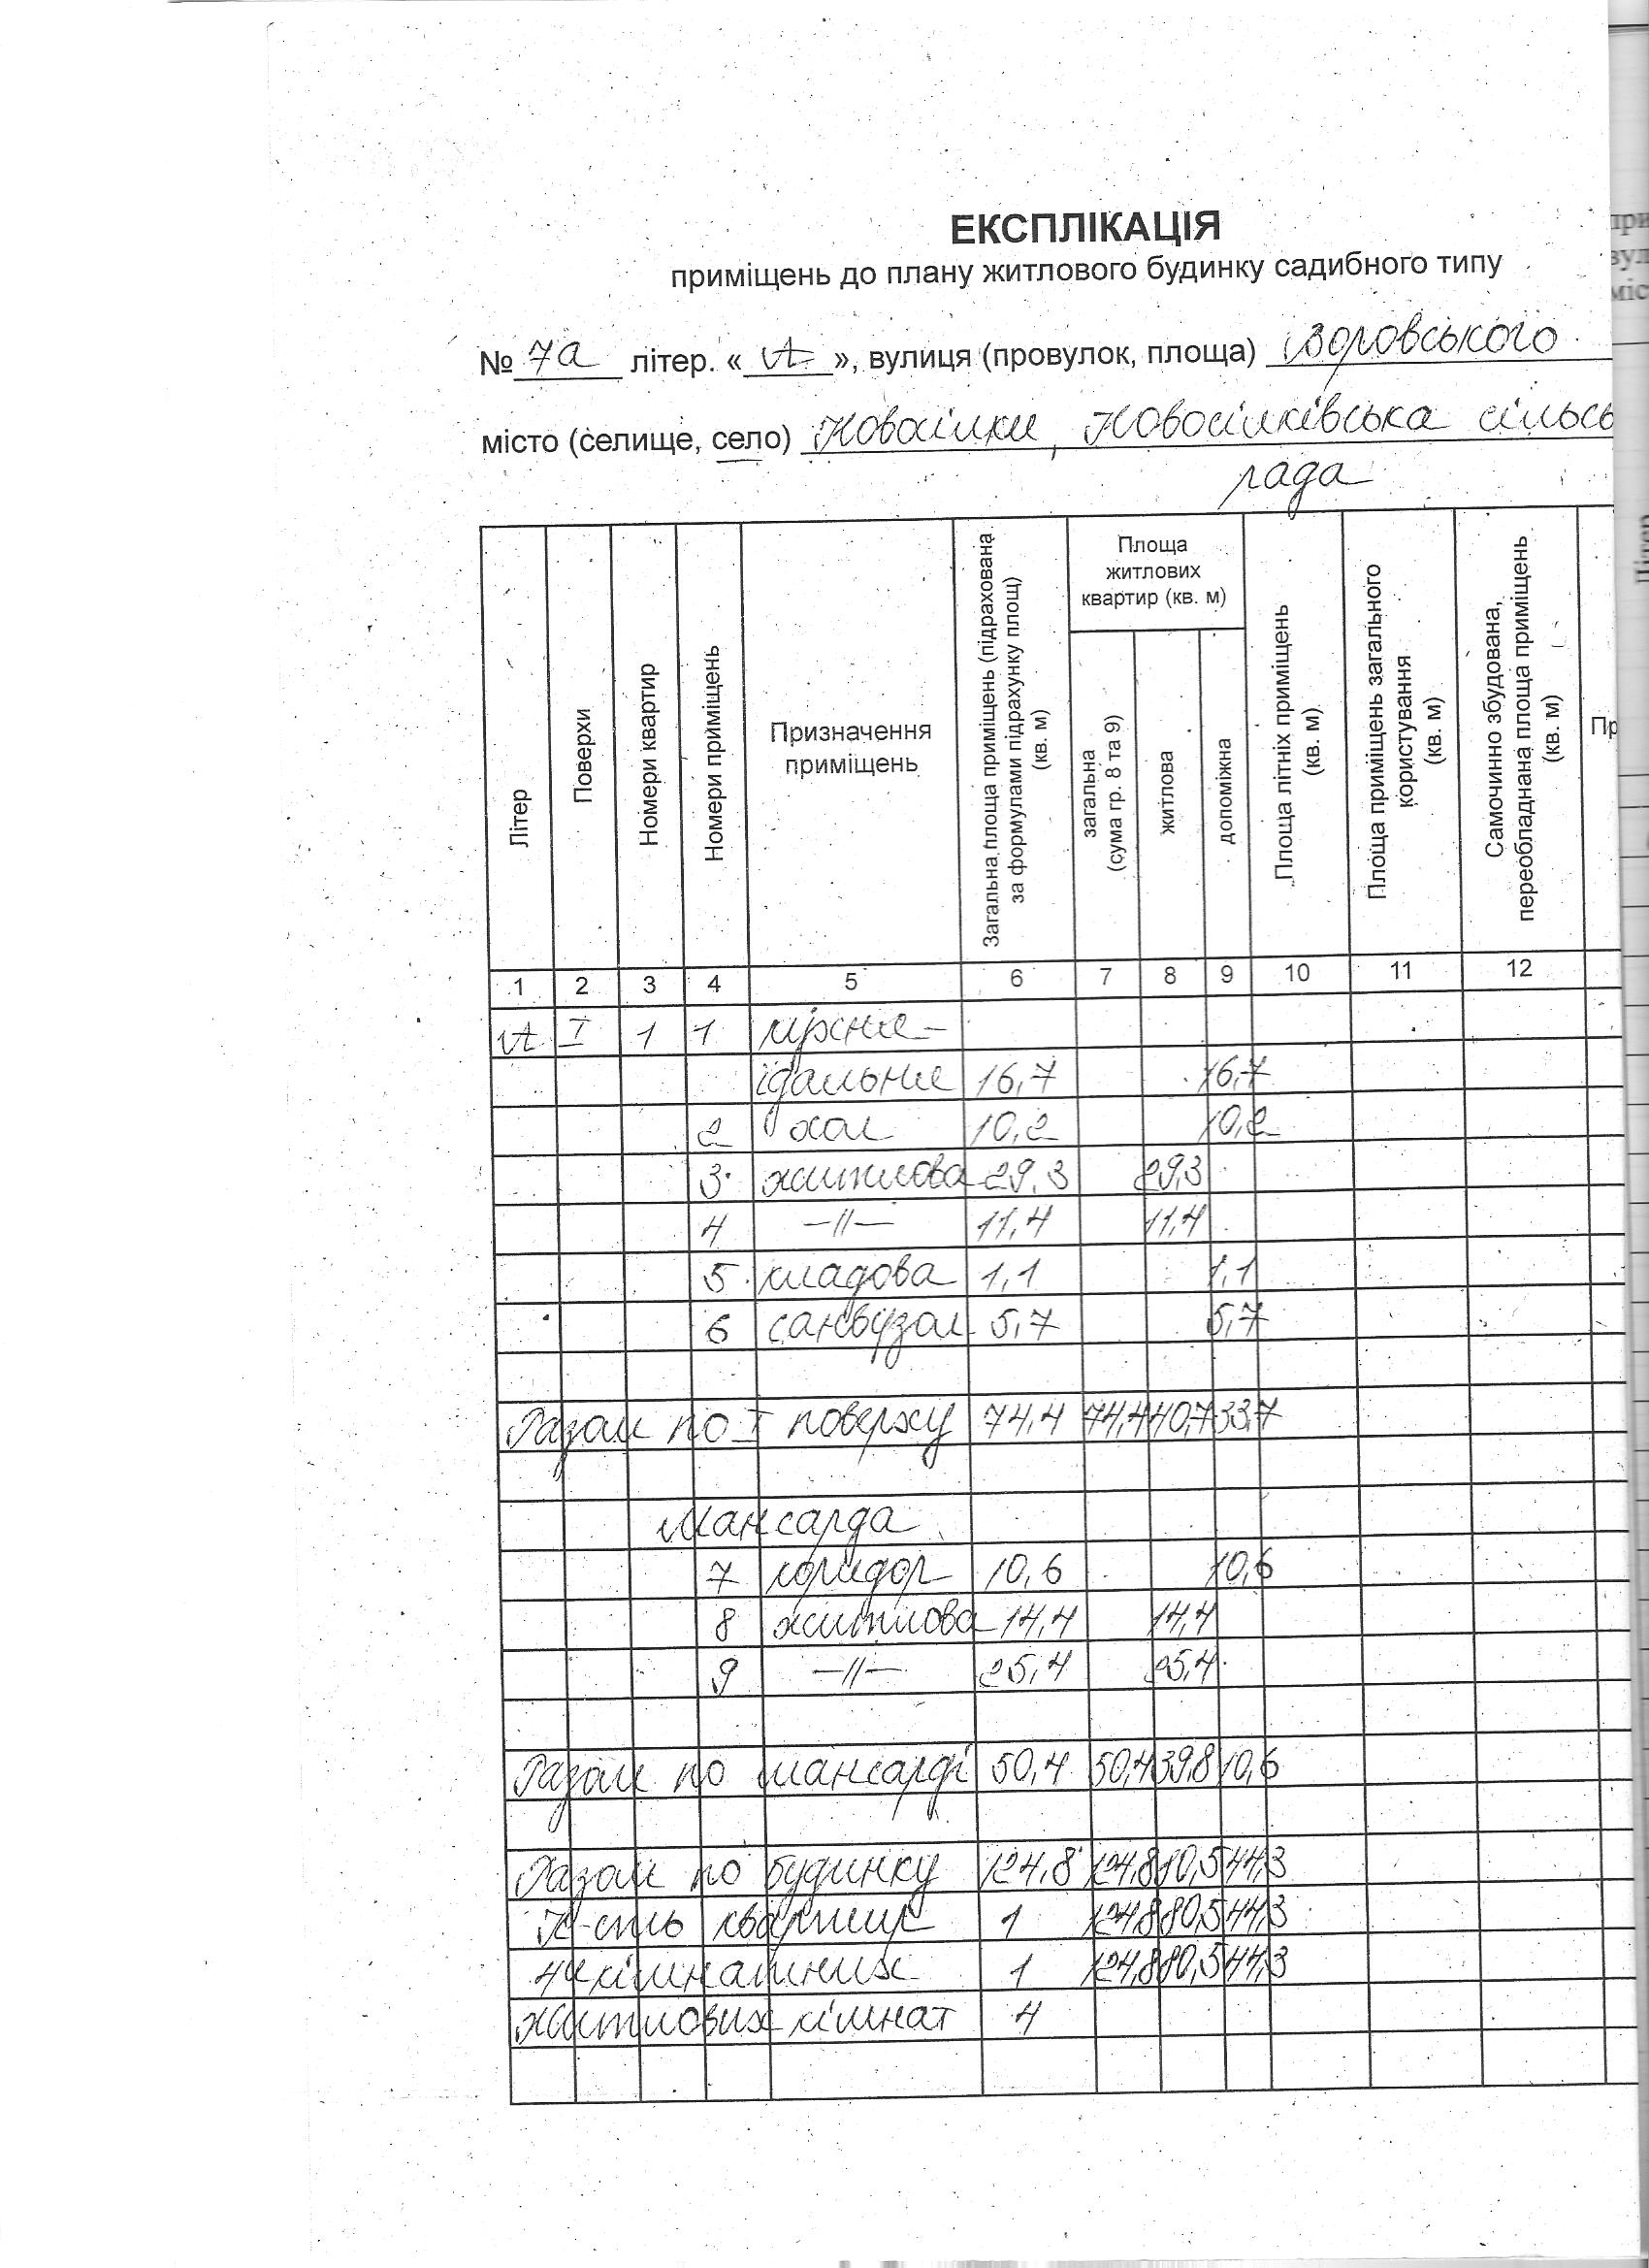 ЕКСПЛІКАЦІЯ
приміщень до плану житлового будинку садибного типу
№ 7а літер. «А», вулиця (провулок, площа) Воровського
місто (селище, село) Новосілки, Новосілківська сільсь
рада
Літер
Поверхи
Номери квартир
Номери приміщень
Призначення
приміщень
Загальна площа приміщень (підрахована
за формулами підрахунку площ)
(кв. м)
Площа
житлових
квартир (кв. м)
загальна
(сума гр. 8 та 9)
житлова
допоміжна
Площа літніх приміщень
(кв. м)
Площа приміщень загального
користування
(кв. м)
Самочинно збудована,
переобладнана площа приміщень
(кв. м)
Пр
1 2 3 4 5 6 7 8 9 10 11 12
А I 1 1 кухня-
їдальня 16,7 16,7
2 хол 10,2 10,2
3 житлова 29,3 29,3
4 —//— 11,4 11,4
5 кладова 1,1 1,1
6 санвузол 5,7 5,7
Разом по I поверху 74,4 74,4 40,7 33,7
Мансарда
7 коридор 10,6 10,6
8 житлова 14,4 14,4
9 —//— 25,4 25,4
Разом по мансарді 50,4 50,4 39,8 10,6
Разом по будинку 124,8 124,8 80,5 44,3
К-сть квартир 1 124,8 80,5 44,3
4х кімнатних 1 124,8 80,5 44,3
житлових кімнат 4